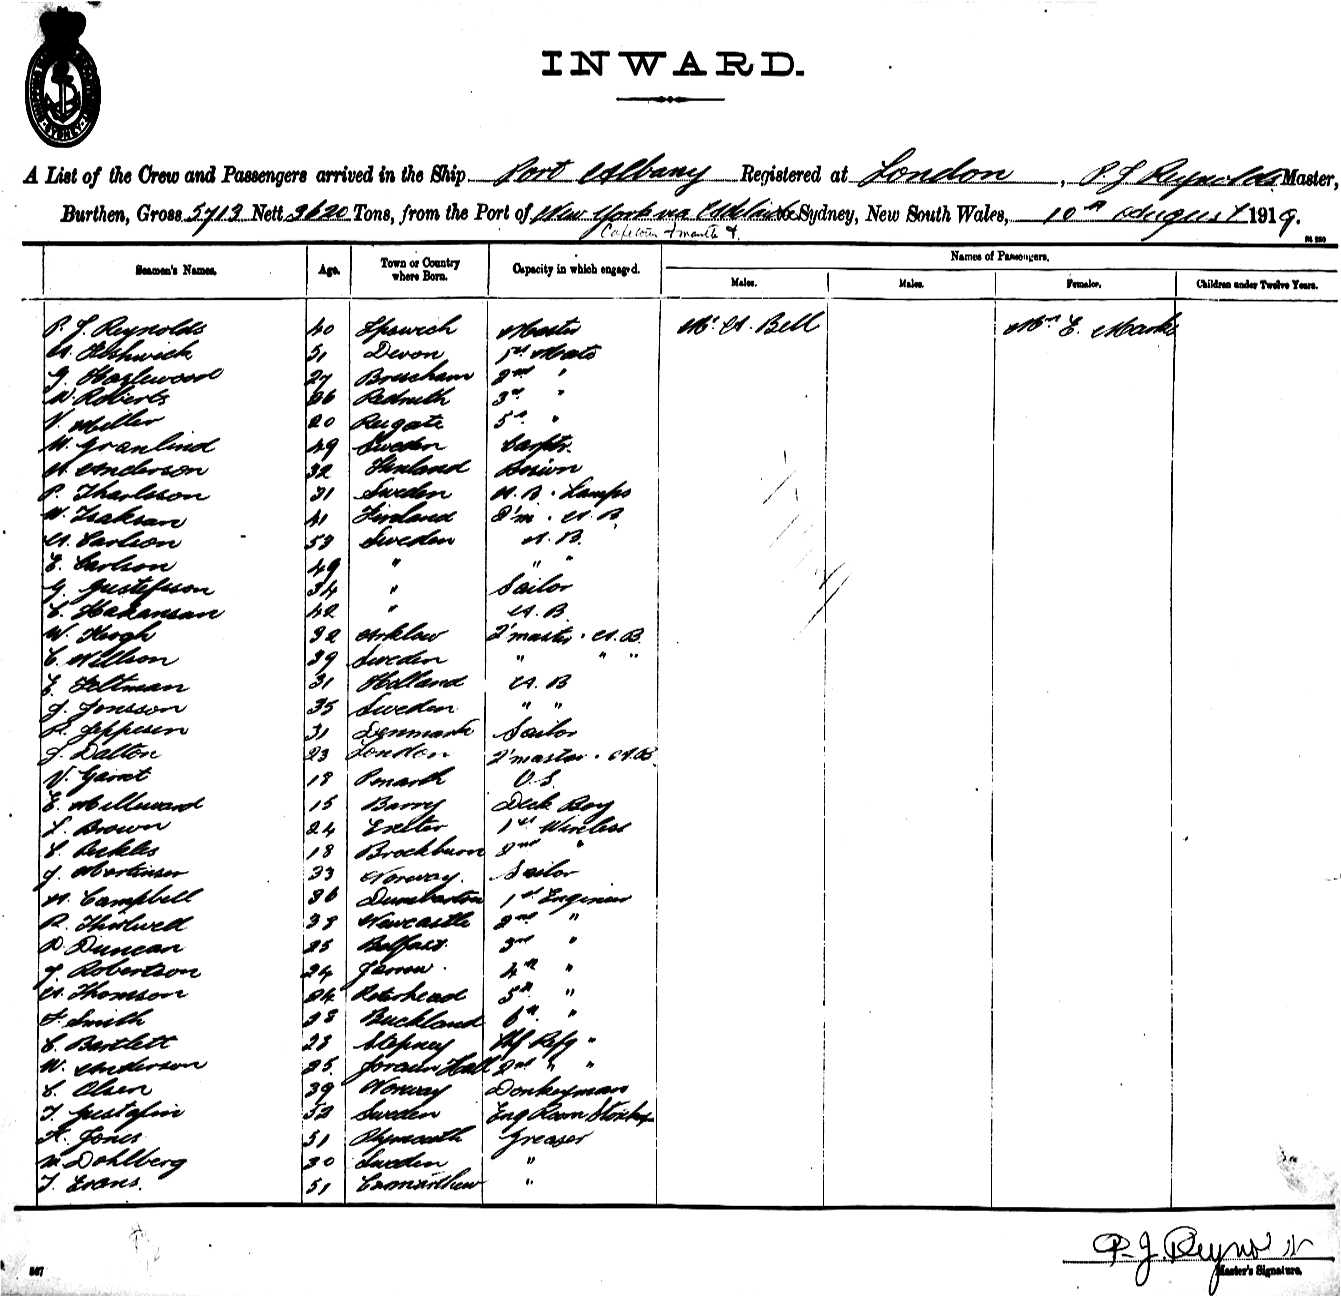 INWARD.
SYDNEY
A List of the Crew and Passengers arrived in the Ship Port Albany Registered at London, P J Reynolds Master,
Burthen, Gross 5712 Nett 3620 Tons, from the Port of New York via Adelaide to Sydney, New South Wales, 10th August 1919.
Capetown
Seamen's Names. Age. Town or Country where Born. Capacity in which engaged. Names of Passengers.
Males. Males. Females. Children under Twelve Years.
P. J. Reynolds 40 Ipswich Master Mr A. Bell Mrs E. Marks
51 Devon 1st Mate
G. Hazlewood 27 2nd "
W. Roberts 26 Redruth 3rd "
V. Miller 20 Reigate 5th "
M. Granlind 49 Sweden Carptr.
A. Anderson 32 Finland Bosun
P. Tharlsson 31 Sweden A.B. Lamps
W. Isaksan 41 Finland 2'm. A B
A. Carlson 53 Sweden A.B.
E. Carlson 49 " " "
G. Gustafsson 34 " Sailor
C. Hakansan 42 " A.B.
W. Keogh 32 Arklow 2'master. A.B.
C. Nillson 39 Sweden " " "
E. Feltman 31 Holland A.B
J. Jonsson 35 Sweden " "
R. Jeppesen 31 Denmark Sailor
J. Dalton 23 London 2'master. A.B.
V. Garret 18 Penarth O.S.
E. Milleward 15 Barry Deck Boy
L. Brown 24 Exeter 1st Wireless
18 2nd "
J. Mortinsen 33 Norway. Sailor
A. Campbell 36 Dumbarton 1st Engineer
R. Thirlwell 38 Newcastle 2nd "
D. Duncan 25 Belfast 3rd "
J. Robertson 24 Jarrow. 4th "
A. Thomson 24 5th "
F. Smith 38 Buckland 6th "
C. Bartlett 28 Stepney Chf Refg "
W. Anderson 25. 2nd " "
C. Olsen 39 Norway Donkeyman
T. 52 Sweden Eng Room
A. Jones 51 Plymouth Greaser
M. Dohlberg 30 Sweden "
T. Evans. 51 "
P. J. Reynolds
Master's Signature.